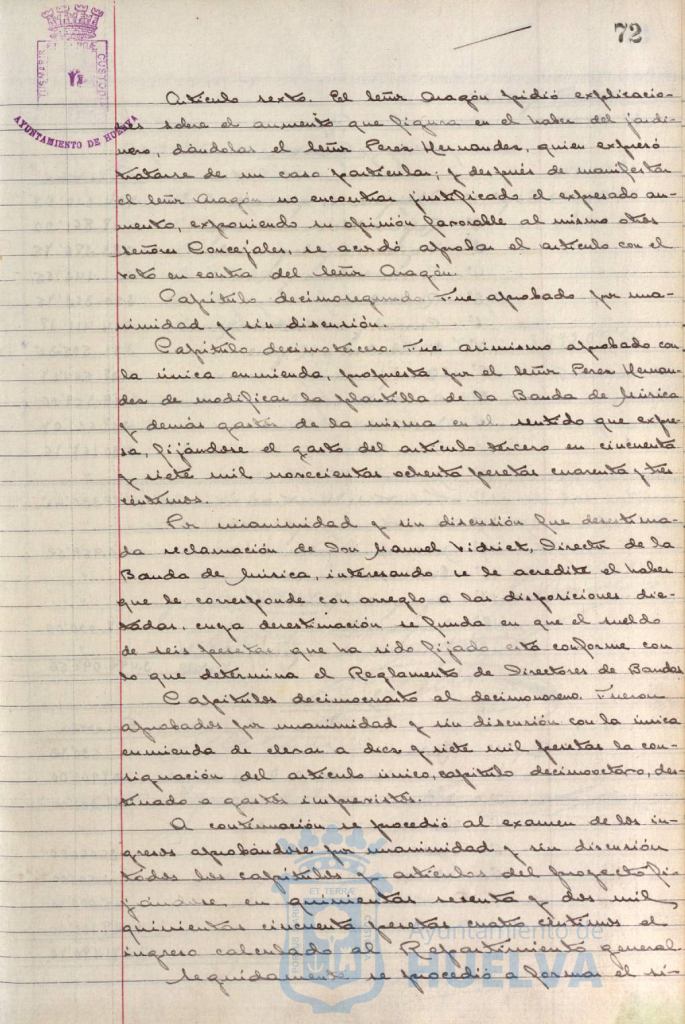 72
AYUNTAMIENTO DE HUELVA
Artículo sexto. El Señor Aragón pidió explicacio-
nes sobre el aumento que figura en el haber del jardi-
nero, dándolas el Señor Perez Hernandez, quien expresó
tratarse de un caso particular; y después de manifestar
el Señor Aragón no encontrar justificado el expresado au-
mento, exponiendo su opinión favorable al mismo otros
Señores Concejales, se acordó aprobar el artículo con el
voto en contra del Señor Aragón.
Capítulo decimosegundo. Fue aprobado por una-
nimidad y sin discusión.
Capítulo decimotercero. Fue asimismo aprobado con
la única enmienda, propuesta por el Señor Perez Hernan-
dez de modificar la plantilla de la Banda de Música
y demás gastos de la misma en el sentido que expre-
sa, fijándose el gasto del artículo tercero en cincuenta
y siete mil novecientas ochenta pesetas cuarenta y tres
céntimos.
Por unanimidad y sin discusión fue desestima-
da reclamación de Don Manuel Vidriet, Director de la
Banda de Música, interesando se le acredite el haber
que le corresponde con arreglo a las disposiciones dic-
tadas, cuya desestimación se funda en que el sueldo
de seis pesetas que ha sido fijado está conforme con
lo que determina el Reglamento de Directores de Bandas
Capítulos decimocuarto al decimonoveno. Fueron
aprobados por unanimidad y sin discusión con la única
enmienda de elevar a diez y siete mil pesetas la con-
signación del artículo único, capítulo decimoctavo, des-
tinado a gastos imprevistos.
A continuación se procedió al examen de los in-
gresos aprobándose por unanimidad y sin discusión
todos los capítulos y artículos del proyecto fi-
jándose en quinientas sesenta y dos mil
quinientas cincuenta pesetas cuatro céntimos el
ingreso calculado al Repartimiento general
Seguidamente se procedió a formar el si-
Ayuntamiento de
HUELVA